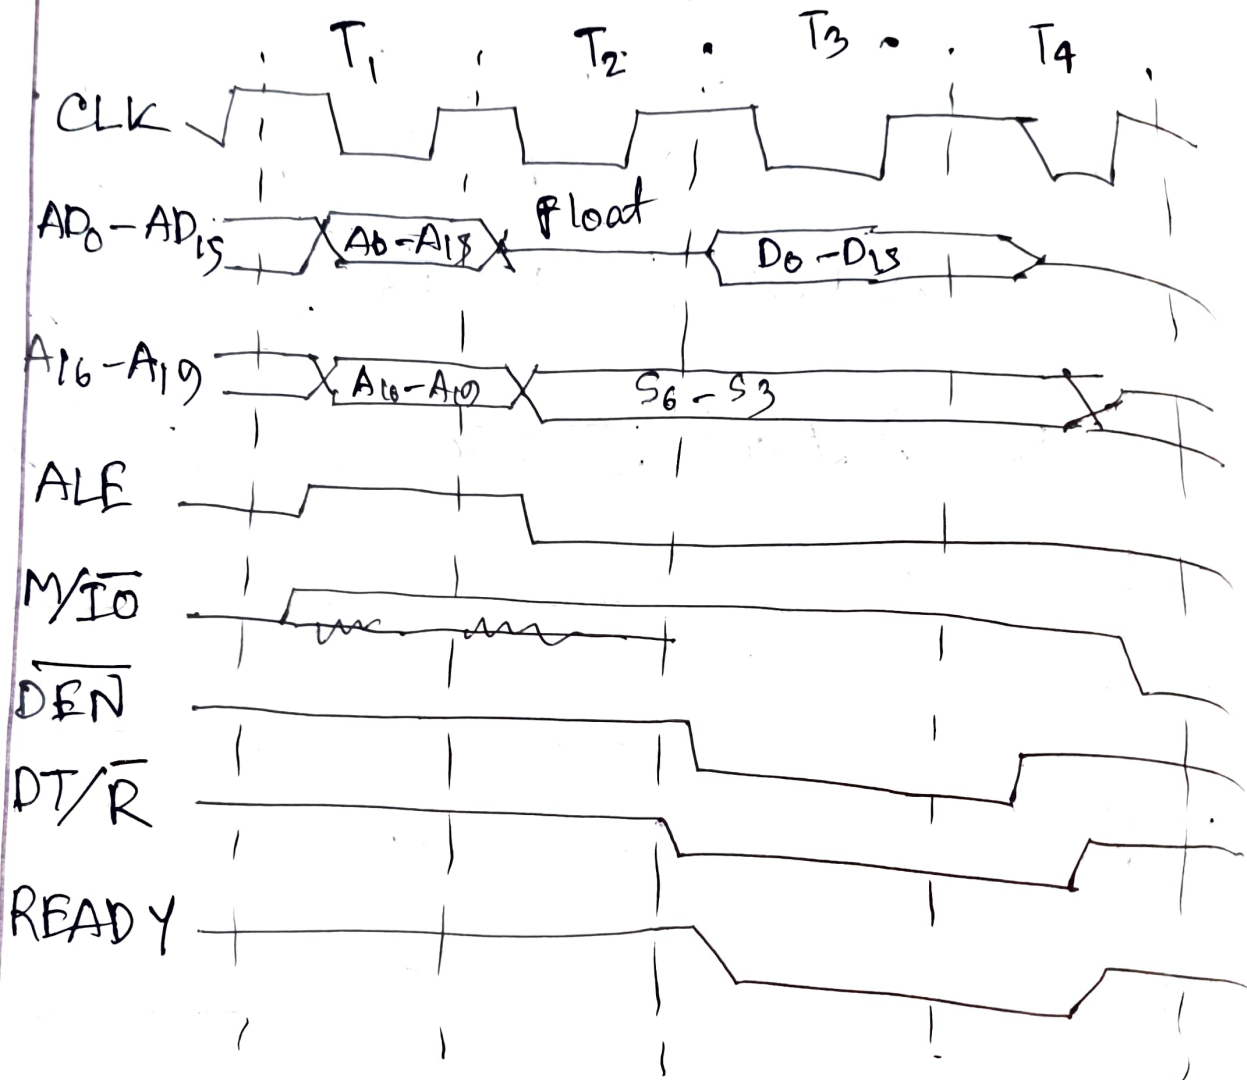 T₁ T₂ T₃ T₄
CLK
AD₀-AD₁₅ A₀-A₁₅ Float D₀-D₁₅
A₁₆-A₁₉ A₁₆-A₁₉ S₆-S₃
ALE
M/I̅O̅
D̅E̅N̅
DT/R̅
READY